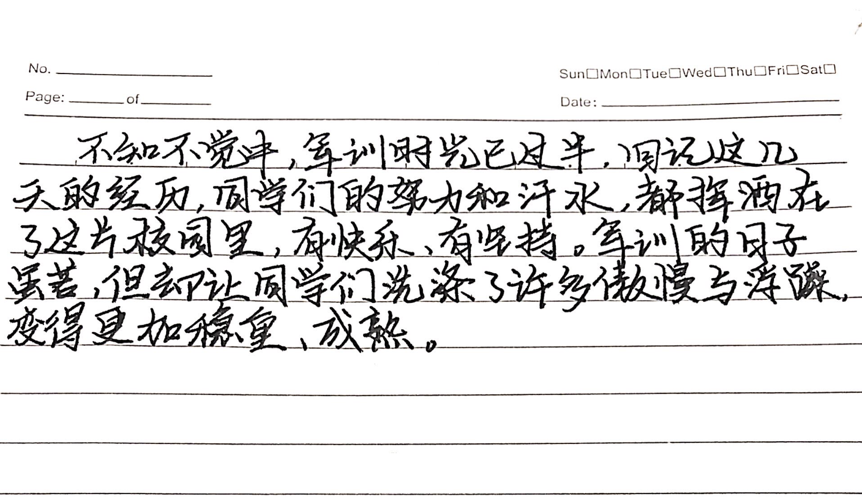 No.
Sun□Mon□Tue□Wed□Thu□Fri□Sat□
Page: of
Date:
不知不觉中,军训时光已过半,回记这几
天的经历,同学们的努力和汗水,都挥洒在
了这片校园里,有快乐、有坚持。军训的日子
虽苦,但却让同学们洗涤了许多傲慢与浮躁,
变得更加稳重、成熟。